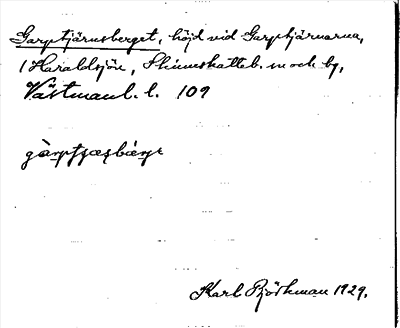 Garptjärnsberget, höjd vid Garptjärnarna,
1 Haraldsjön, Skinnskatteb. sn och bg,
Västmanl. l. 109
gàrptʃæsbærjt
Karl Björkman 1929.